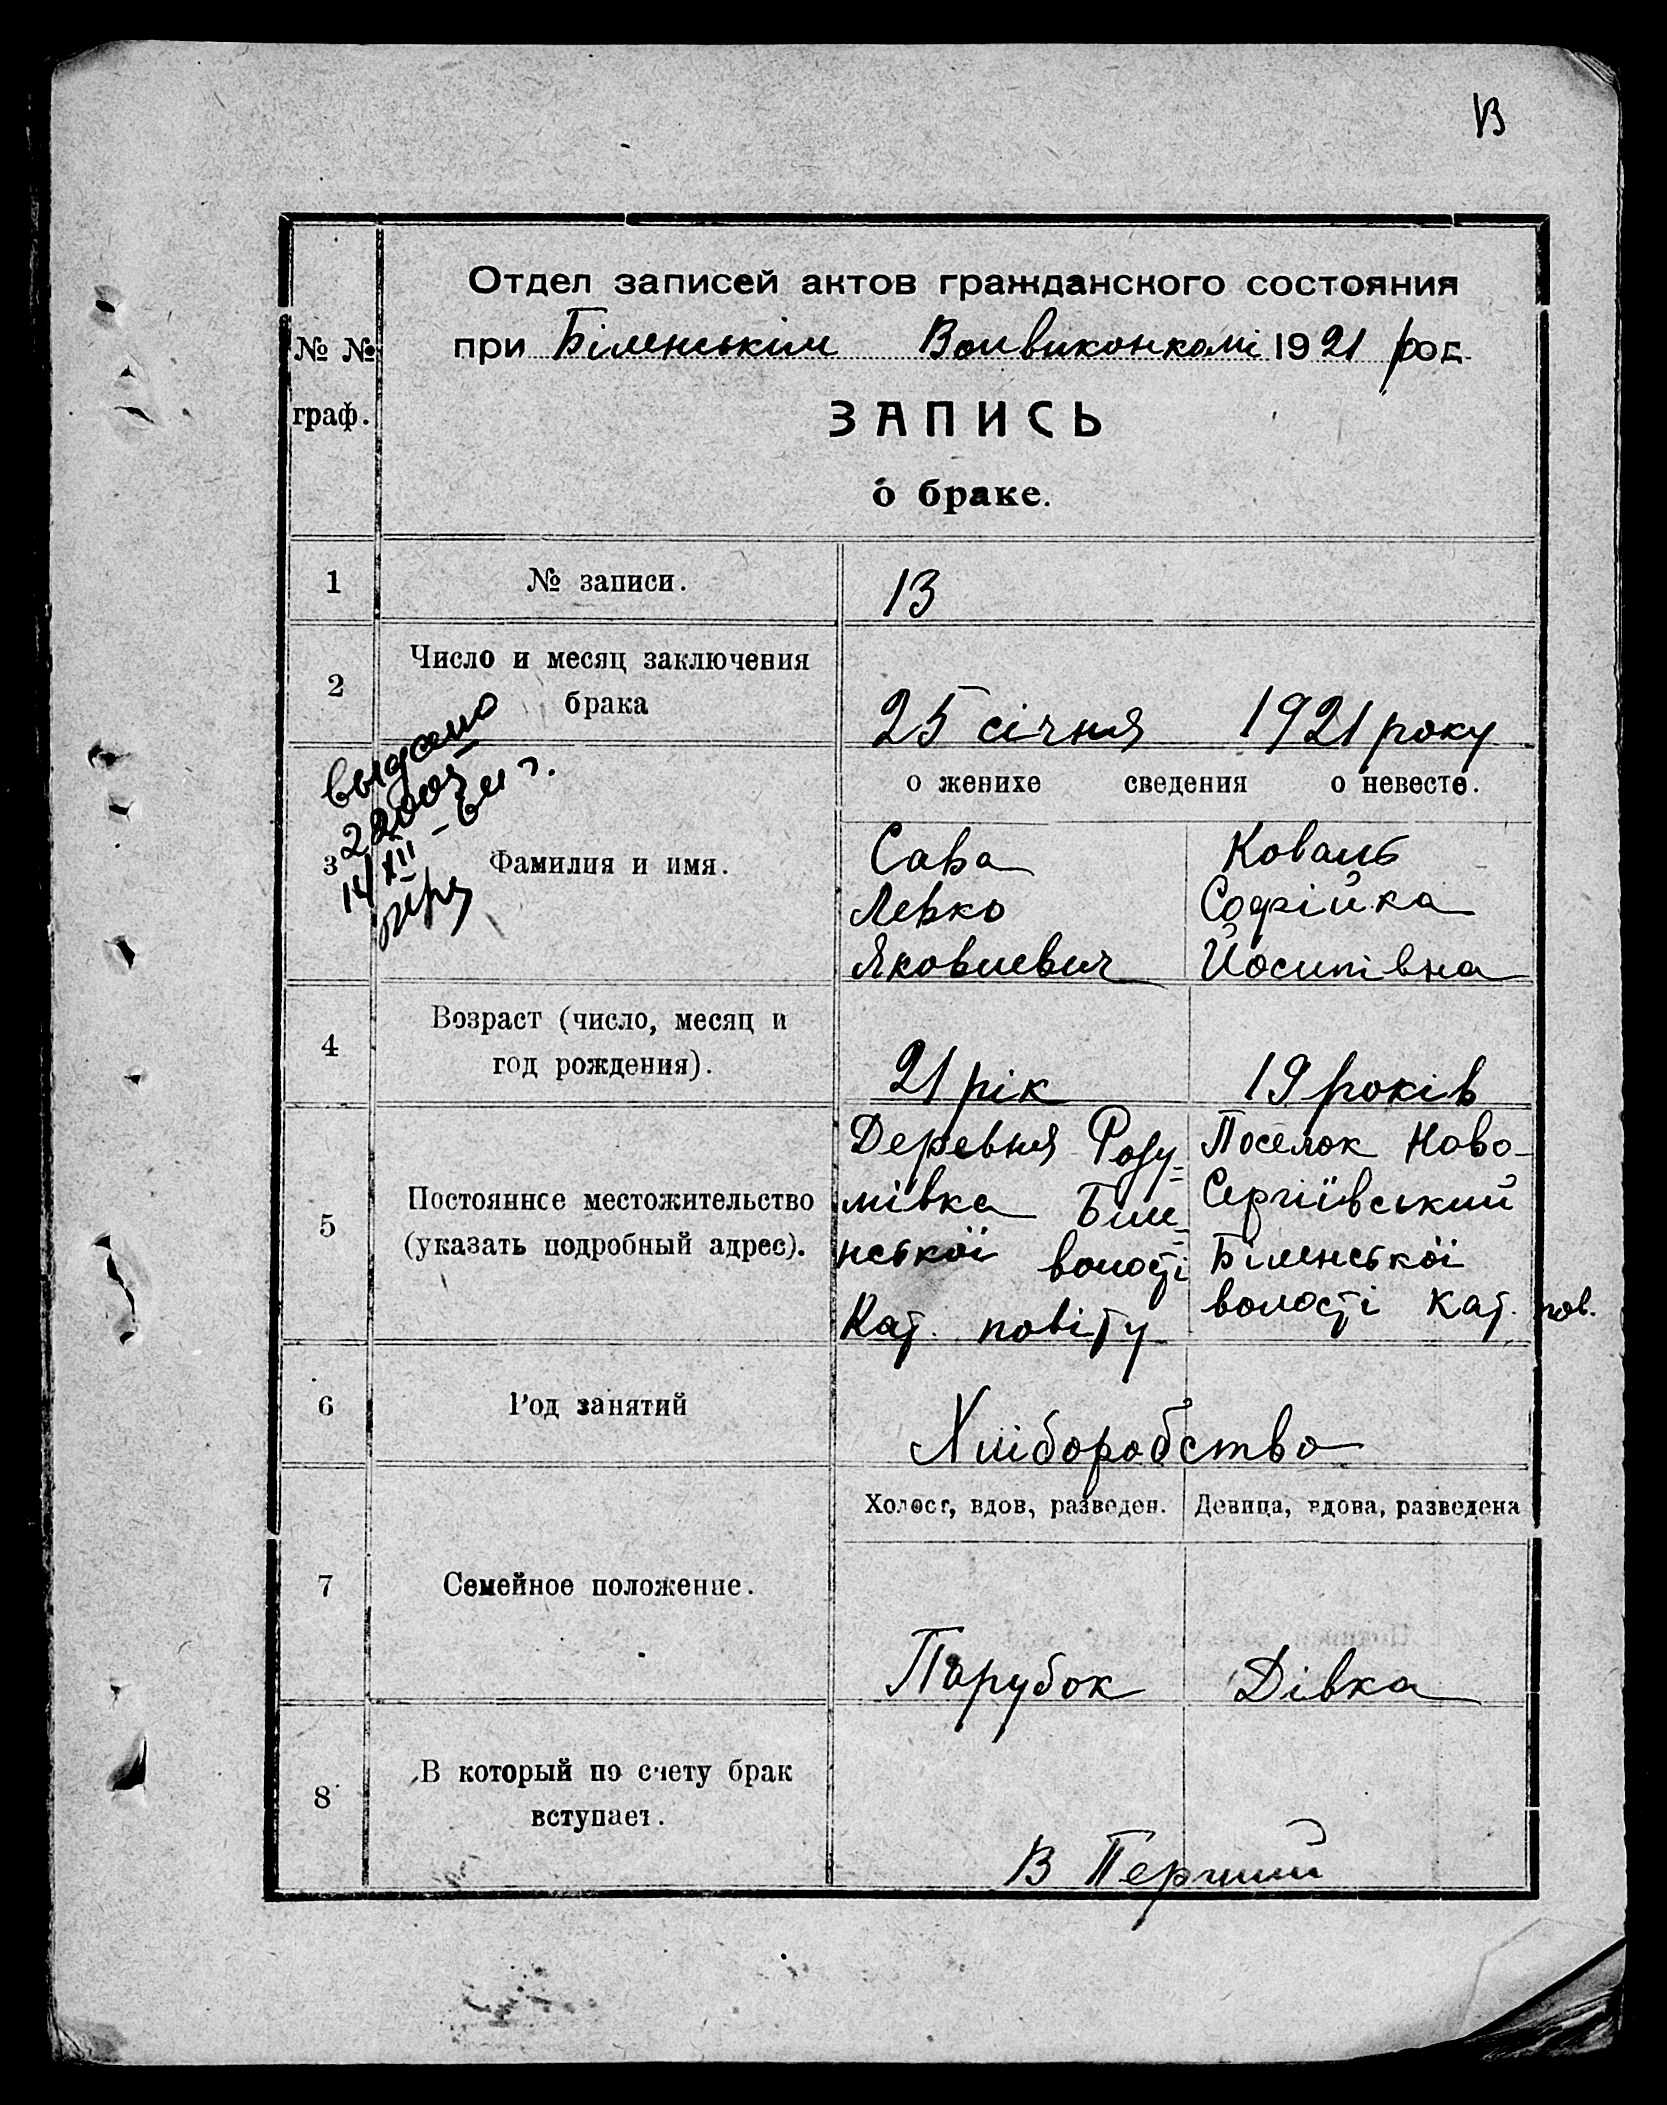 13
Отдел записей актов гражданского состояния
при Біленськім Волвиконкомі 1921 род.
№ №
граф.
ЗАПИСЬ
о браке.
1 № записи. 13
2 Число и месяц заключения
брака
25 січня 1921 року
выдано
о женихе сведения о невесте.
3 Фамилия и имя.
Сава Коваль
Левко Софійка
Яковлевич Йосипівна
4 Возраст (число, месяц и
год рождения).
21 рік 19 років
5 Постоянное местожительство
(указать подробный адрес).
Деревня Розу-
мівка Біле-
нської волості
Кат. повіту
Поселок Ново-
Сергіївський
Біленської
волості Кат. пов.
6 Род занятий
Хліборобство
Холост, вдов, разведен. Девица, вдова, разведена
7 Семейное положение.
Парубок Дівка
8 В который по счету брак
вступает.
В Перший